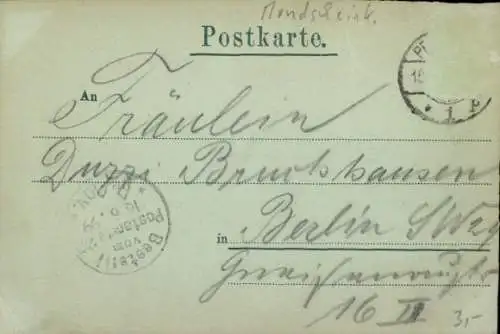 Mondscheink.
Postkarte.
An
Fräulein
Duzzi Bruckhausen
in Berlin SW
16 II
3,-
Bestellt
vom
Postamte